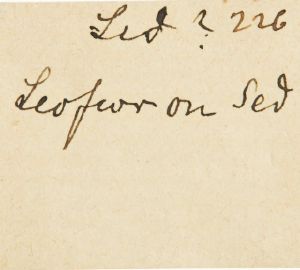 Led ? 226
Leofwr on Sed